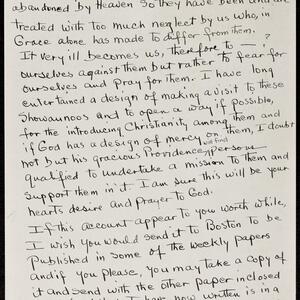 abandoned by Heaven So they have been and are
treated with too much neglect by us who, in
Grace alone has made to differ from them.
It very ill becomes us, therefore to — ?
ourselves against them but rather to fear for
ourselves and Pray for them. I have long
entertained a design of making a visit to these
Showaunoos and to open a way if possible,
for the introducing Christianity among them and
if God has a design of mercy on them, I doubt
not but his gracious Providence will find persons
qualified to undertake a mission to them and
Support them in it. I am sure this will be your
hearts desire and Prayer to God.
If this account appear to you worth while,
I wish you would send it to Boston to be
Published in Some of the weekly papers
and if you please, you may take a copy of
it and send with the other paper inclosed
I have now written is in a